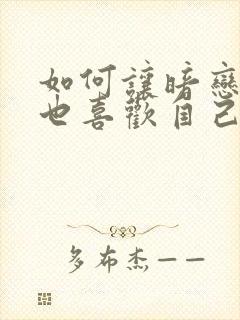 如何讓暗戀
也喜歡自己
多布杰——